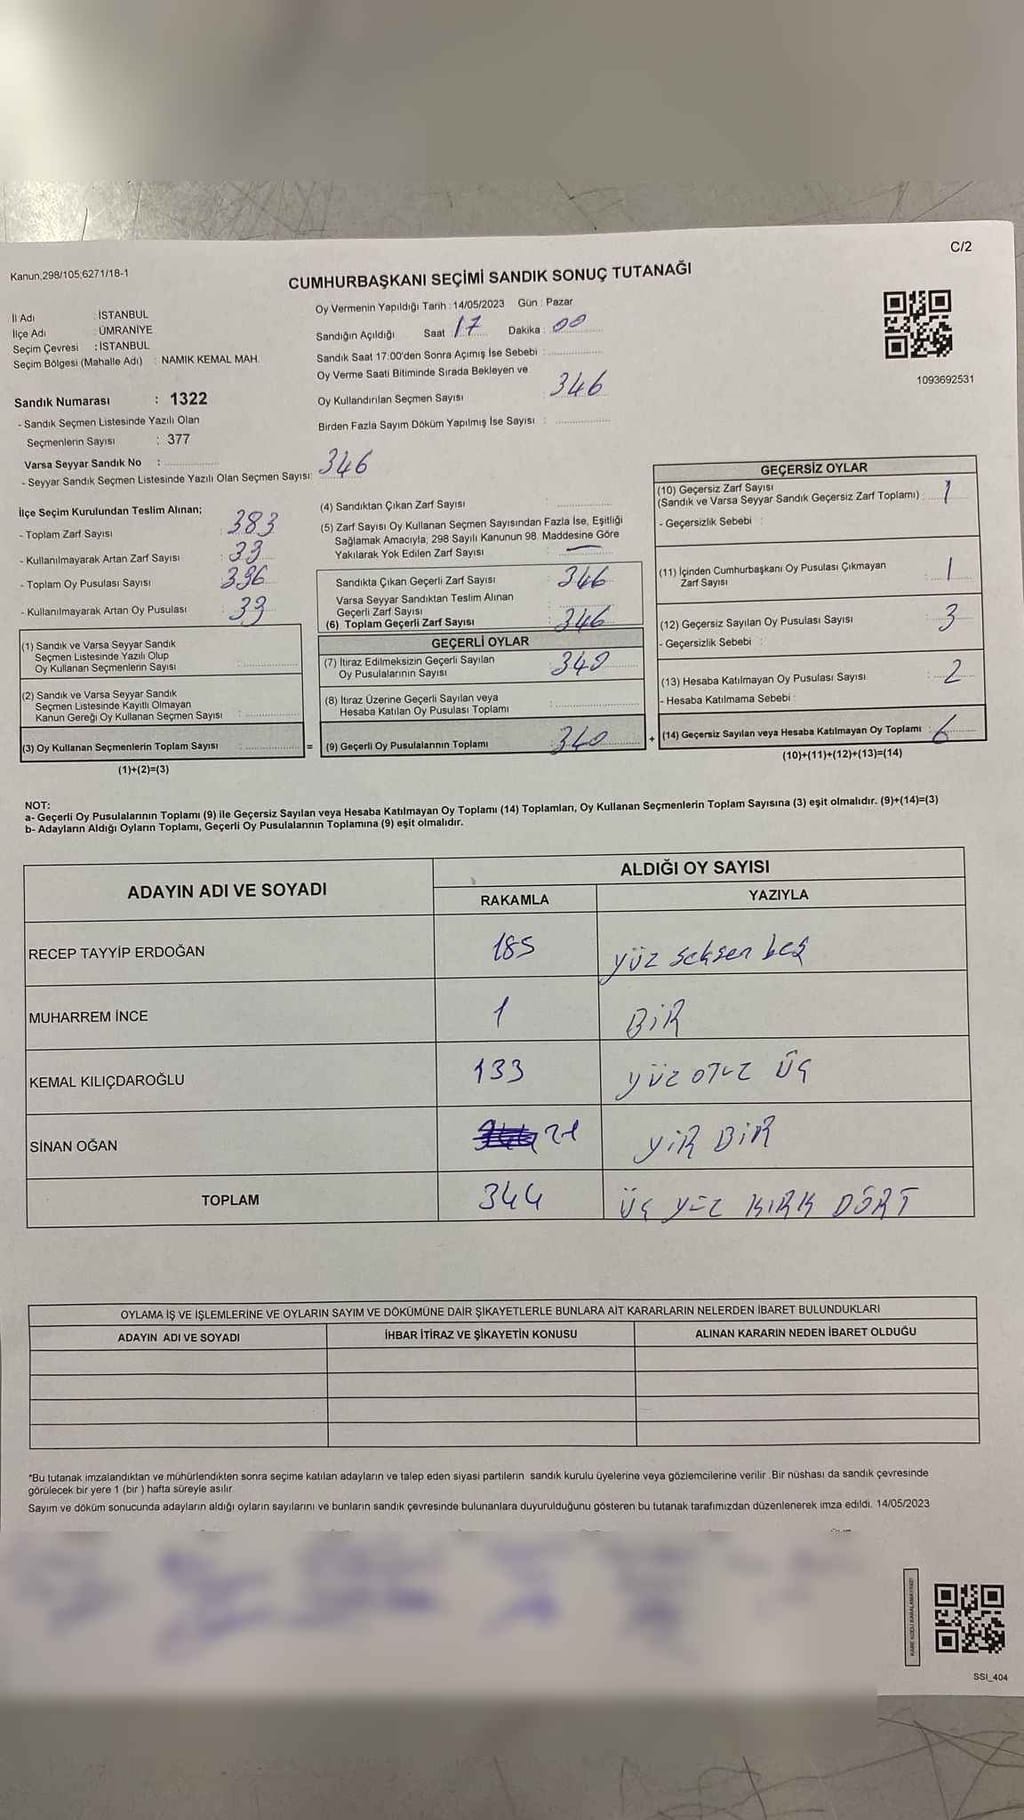 C/2
Kanun,298/105,6271/18-1
CUMHURBAŞKANI SEÇİMİ SANDIK SONUÇ TUTANAĞI
İl Adı : İSTANBUL
İlçe Adı : ÜMRANİYE
Seçim Çevresi : İSTANBUL
Seçim Bölgesi (Mahalle Adı) : NAMIK KEMAL MAH.
Sandık Numarası : 1322
- Sandık Seçmen Listesinde Yazılı Olan
Seçmenlerin Sayısı : 377
Varsa Seyyar Sandık No :
- Seyyar Sandık Seçmen Listesinde Yazılı Olan Seçmen Sayısı: 346
Oy Vermenin Yapıldığı Tarih : 14/05/2023 Gün : Pazar
Sandığın Açıldığı Saat 17 Dakika : 00
Sandık Saat 17:00'den Sonra Açımış İse Sebebi :
Oy Verme Saati Bitiminde Sırada Bekleyen ve
Oy Kullandırılan Seçmen Sayısı : 346
Birden Fazla Sayım Döküm Yapılmış İse Sayısı :
1093692531
İlçe Seçim Kurulundan Teslim Alınan;
- Toplam Zarf Sayısı : 383
- Kullanılmayarak Artan Zarf Sayısı : 33
- Toplam Oy Pusulası Sayısı : 396
- Kullanılmayarak Artan Oy Pusulası : 33
(1) Sandık ve Varsa Seyyar Sandık
Seçmen Listesinde Yazılı Olup
Oy Kullanan Seçmenlerin Sayısı :
(2) Sandık ve Varsa Seyyar Sandık
Seçmen Listesinde Kayıtlı Olmayan
Kanun Gereği Oy Kullanan Seçmen Sayısı :
(3) Oy Kullanan Seçmenlerin Toplam Sayısı : =
(1)+(2)=(3)
(4) Sandıktan Çıkan Zarf Sayısı :
(5) Zarf Sayısı Oy Kullanan Seçmen Sayısından Fazla İse, Eşitliği
Sağlamak Amacıyla, 298 Sayılı Kanunun 98. Maddesine Göre
Yakılarak Yok Edilen Zarf Sayısı : —
Sandıkta Çıkan Geçerli Zarf Sayısı : 346
Varsa Seyyar Sandıktan Teslim Alınan
Geçerli Zarf Sayısı :
(6) Toplam Geçerli Zarf Sayısı : 346
GEÇERLİ OYLAR
(7) İtiraz Edilmeksizin Geçerli Sayılan
Oy Pusulalarının Sayısı : 340
(8) İtiraz Üzerine Geçerli Sayılan veya
Hesaba Katılan Oy Pusulası Toplamı :
(9) Geçerli Oy Pusulalarının Toplamı : 340 +
GEÇERSİZ OYLAR
(10) Geçersiz Zarf Sayısı
(Sandık ve Varsa Seyyar Sandık Geçersiz Zarf Toplamı) : 1
- Geçersizlik Sebebi :
(11) İçinden Cumhurbaşkanı Oy Pusulası Çıkmayan
Zarf Sayısı : 1
(12) Geçersiz Sayılan Oy Pusulası Sayısı : 3
- Geçersizlik Sebebi :
(13) Hesaba Katılmayan Oy Pusulası Sayısı : 2
- Hesaba Katılmama Sebebi :
(14) Geçersiz Sayılan veya Hesaba Katılmayan Oy Toplamı : 6
(10)+(11)+(12)+(13)=(14)
NOT:
a- Geçerli Oy Pusulalarının Toplamı (9) ile Geçersiz Sayılan veya Hesaba Katılmayan Oy Toplamı (14) Toplamları, Oy Kullanan Seçmenlerin Toplam Sayısına (3) eşit olmalıdır. (9)+(14)=(3)
b- Adayların Aldığı Oyların Toplamı, Geçerli Oy Pusulalarının Toplamına (9) eşit olmalıdır.
ADAYIN ADI VE SOYADI
ALDIĞI OY SAYISI
RAKAMLA YAZIYLA
RECEP TAYYİP ERDOĞAN 185 yüz seksen beş
MUHARREM İNCE 1 BİR
KEMAL KILIÇDAROĞLU 133 yüz otuz üç
SİNAN OĞAN 21 YİR BİR
TOPLAM 344 ÜÇ YÜZ KIRK DÖRT
OYLAMA İŞ VE İŞLEMLERİNE VE OYLARIN SAYIM VE DÖKÜMÜNE DAİR ŞİKAYETLERLE BUNLARA AİT KARARLARIN NELERDEN İBARET BULUNDUKLARI
ADAYIN ADI VE SOYADI İHBAR İTİRAZ VE ŞİKAYETİN KONUSU ALINAN KARARIN NEDEN İBARET OLDUĞU
*Bu tutanak imzalandıktan ve mühürlendikten sonra seçime katılan adayların ve talep eden siyasi partilerin sandık kurulu üyelerine veya gözlemcilerine verilir .Bir nüshası da sandık çevresinde
görülecek bir yere 1 (bir ) hafta süreyle asılır.
Sayım ve döküm sonucunda adayların aldığı oyların sayılarını ve bunların sandık çevresinde bulunanlara duyurulduğunu gösteren bu tutanak tarafımızdan düzenlenerek imza edildi. 14/05/2023
SSI_404